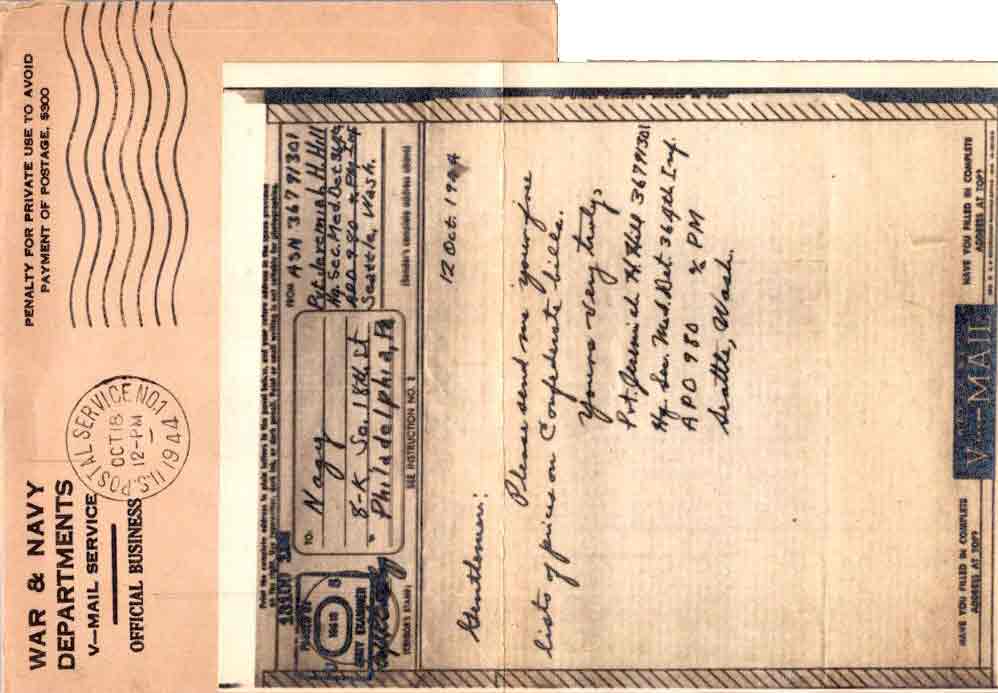 WAR & NAVY
DEPARTMENTS
V–MAIL SERVICE
OFFICIAL BUSINESS
U.S. POSTAL SERVICE NO.1
OCT 18
12-PM
1944
PENALTY FOR PRIVATE USE TO AVOID
PAYMENT OF POSTAGE, $300
Print the complete address in plain letters in the panel below, and your return address in the space provided
PASSED BY
ARMY EXAMINER
(CENSOR'S STAMP)
TO:
Nagy
8-K So. 18th St
Philadelphia, Pa
SEE INSTRUCTION NO. 2
FROM ASN 36791301
Pvt. Jeremiah H. Hill
Hq. Sec. Med. Det. 364th
APO 980 % PM Inf
Seattle, Wash.
(Sender's complete address above)
12 Oct. 1944
Gentlemen:
Please send me your free
lists of prices on Confederate bills.
Yours very truly,
Pvt. Jeremiah H Hill 36791301
Hq. Sec. Med. Det. 364th Inf.
APO 980 % PM
Seattle, Wash.
HAVE YOU FILLED IN COMPLETE
ADDRESS AT TOP?
V···—MAIL
HAVE YOU FILLED IN COMPLETE
ADDRESS AT TOP?